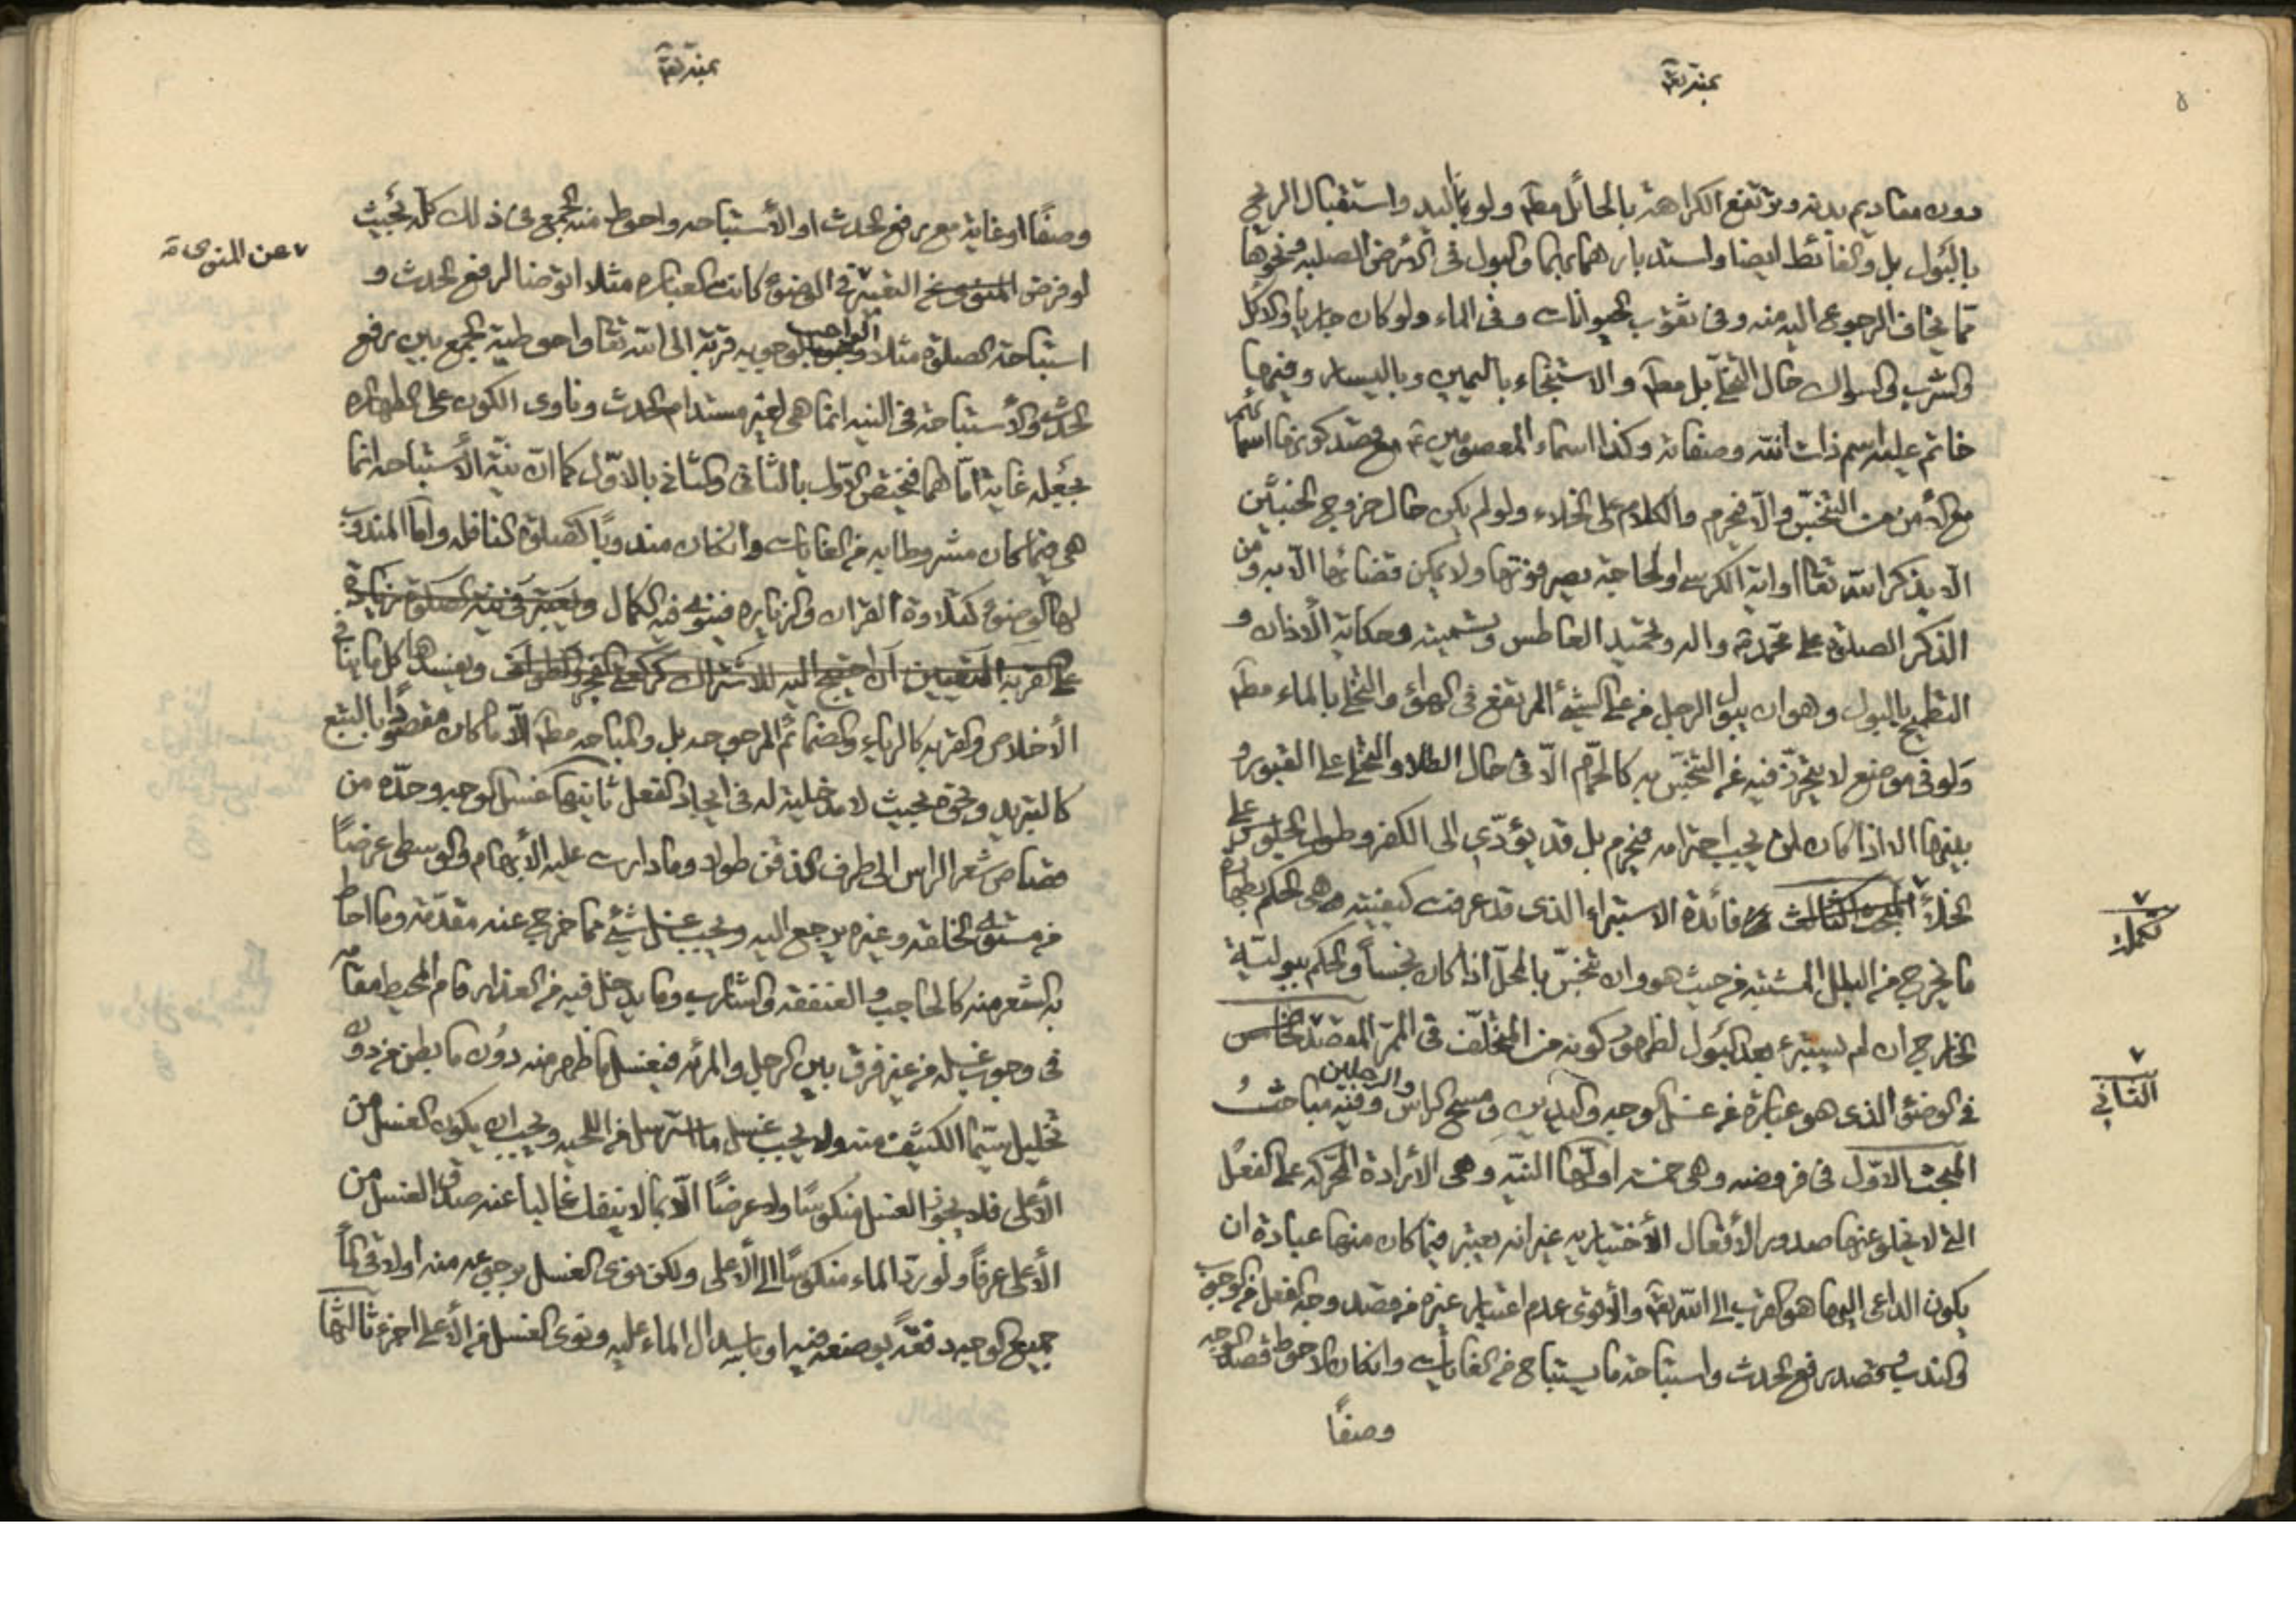 بمنه تعالى
٥
دون مقاديم بدنه وترتفع الكراهة بالحائل مطم ولو باليد واستقبال الريح
بالبول بل والغائط ايضا واستدبارهما بهما والبول في الارض الصلبه ونحوها
مما يخاف الرجوع اليه منه وفي ثقوب الحيوانات وفي الماء ولو كان جاريا والاكل
والشرب والسواك حال التخلي بل مطم والاستنجاء باليمين وباليسار وفيها
خاتم عليه اسم ذات الله وصفاته وكذا اسماء المعصومين ع مع قصد كونها اسمائهم
مع الأمن من التنجس والا فيحرم والكلام على الخلاء ولو لم يكن حال خروج الخبثين
الا بذكر الله تعالى او اية الكرسي او لحاجة يضر فوتها ولا يمكن قضائها الا به ومن
الذكر الصلوة على محمد ص واله وتحميد العاطس وتسميته وحكاية الاذان و
التطميح بالبول وهو ان يبول الرجل من على الشيئ المرتفع في الهواء والتخلي بالماء مطم
ولو في موضع لا يتحرز فيه عن التنجس به كالحمام الا في حال الطلا والتخلي على القبور و
بينها الا اذا كان لمن يجب احترامه فيحرم بل قد يؤدي الى الكفر وطول الجلوس على
الخلاء المبحث الثالث فائدة الاستبراء الذي قد عرفت كيفيته هي الحكم بطهارة
ما يخرج من البلل المشتبه من حيث هو وان تنجس بالمحل اذا كان نجساً والحكم ببولية
الخارج ان لم يستبرء بعد البول لظهور كونه من المتخلف في الممر المقصد الخامس
في الوضوء الذي هو عبارة عن غسل الوجه واليدين ومسح الراس والرجلين وفيه مباحث
المبحث الاول في فروضه وهي خمسة اولها النيه وهي الارادة المحركه على الفعل
التي لا يخلو عنها صدور الأفعال الأختياريه غير انه يعتبر فيما كان منها عبادة ان
يكون الداعي اليها هو القرب الى الله تعالى والأقوى عدم اعتبار غيره من قصد وجه الفعل من الوجوب
والندب وقصد رفع الحدث واستباحة ما يستباح من الغايات وان كان الاحوط قصد الوجه
وصفاً
تكملة
الثاني
بمنه تعالى
وصفاً او غاية مع رفع الحدث او الأستباحه واحوط منه الجمع في ذلك كله بحيث
لو فرض المنوي التعبير في الوضوء كانت العباره مثلا اتوضا لرفع الحدث و
استباحة الصلوة مثلا الواجب لوجوبه قربة الى الله تعا واحوطية الجمع بين رفع
الحدث والأستباحة في النيه انما هي لغير مستدام الحدث وناوي الكون على الطهاره
بجعله غاية اما هما فيختص الاول بالثاني والثاني بالاول كما ان نية الأستباحه انما
هي فيما كان مشروطا به من الغايات وان كان مندوبًا كصلوة النافله واما المندوب
لها الوضوء كتلاوة القران والزياره فينوي فيه الكمال ويعتبر في نية الصلوة زيادة
على القربة التعيين ان احتيج اليه للاشتراك كركعتي الفجر والطواف ويفسدها كل ما ينافي
الأخلاص والقربه كالرياء والضمائم المرجوحه بل والمباحه مطم الا ما كان مقصودًا بالتبع
كالتبريد ونحوه بحيث لا مدخلية له في ايجاد الفعل ثانيها غسل الوجه وحده من
قصاص شعر الراس الى طرف الذقن طولا وما دارت عليه الأبهام والوسطى عرضًا
من مستوي الخلقه وغيره يرجع اليه ويجب غسل شيئ مما خرج عنه مقدمة وما احاط
به الشعر منه كالحاجب والعنفقه والشارب وما يدخل فيه من العذار قام المحيط مقامه
في وجوب غسله من غير فرق بين الرجل والمرئه فيغسل ما ظهر منه دون ما بطن من دون
تخليل سيما الكثيف منه ولا يجب غسل ما استرسل من اللحيه ويجب ان يكون الغسل من
الأعلى فلا يجوز الغسل منكوسًا ولا عرضًا الا بما لا ينفك غالبا عنه صدق الغسل من
الأعلى عرفاً ولو رد الماء منكوسًا الى الأعلى ولكن نوى الغسل برجوعه منه او لاقى الماء
جميع الوجه دفعةً بوضعه فيه او باسدال الماء عليه ونوى الغسل من الأعلى اجزء ثالثها
عن المنوي